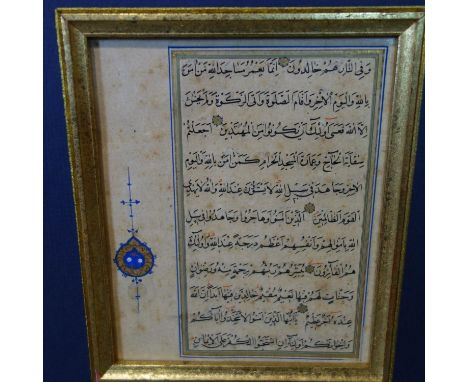 وَفِي النَّارِ هُمْ خَالِدُونَ اِنَّمَا يَعْمُرُ مَسَاجِدَ اللهِ مَنْ اٰمَنَ
بِاللهِ وَالْيَوْمِ الْاٰخِرِ وَاَقَامَ الصَّلٰوةَ وَاٰتَى الزَّكٰوةَ وَلَمْ يَخْشَ
اِلَّا اللهَ فَعَسٰى اُولٰئِكَ اَنْ يَكُونُوا مِنَ الْمُهْتَدِينَ اَجَعَلْتُمْ
سِقَايَةَ الْحَاجِّ وَعِمَارَةَ الْمَسْجِدِ الْحَرَامِ كَمَنْ اٰمَنَ بِاللهِ وَالْيَوْمِ
الْاٰخِرِ وَجَاهَدَ فِي سَبِيلِ اللهِ لَا يَسْتَوُونَ عِنْدَ اللهِ وَاللهُ لَا يَهْدِي
الْقَوْمَ الظَّالِمِينَ اَلَّذِينَ اٰمَنُوا وَهَاجَرُوا وَجَاهَدُوا فِي سَبِيلِ
اللهِ بِاَمْوَالِهِمْ وَاَنْفُسِهِمْ اَعْظَمُ دَرَجَةً عِنْدَ اللهِ وَاُولٰئِكَ
هُمُ الْفَائِزُونَ يُبَشِّرُهُمْ رَبُّهُمْ بِرَحْمَةٍ مِنْهُ وَرِضْوَانٍ
وَجَنَّاتٍ لَهُمْ فِيهَا نَعِيمٌ مُقِيمٌ خَالِدِينَ فِيهَا اَبَدًا اِنَّ اللهَ
عِنْدَهُ اَجْرٌ عَظِيمٌ يَا اَيُّهَا الَّذِينَ اٰمَنُوا لَا تَتَّخِذُوا اٰبَاءَكُمْ
وَاِخْوَانَكُمْ اَوْلِيَاءَ اِنِ اسْتَحَبُّوا الْكُفْرَ عَلَى الْاِيمَانِ